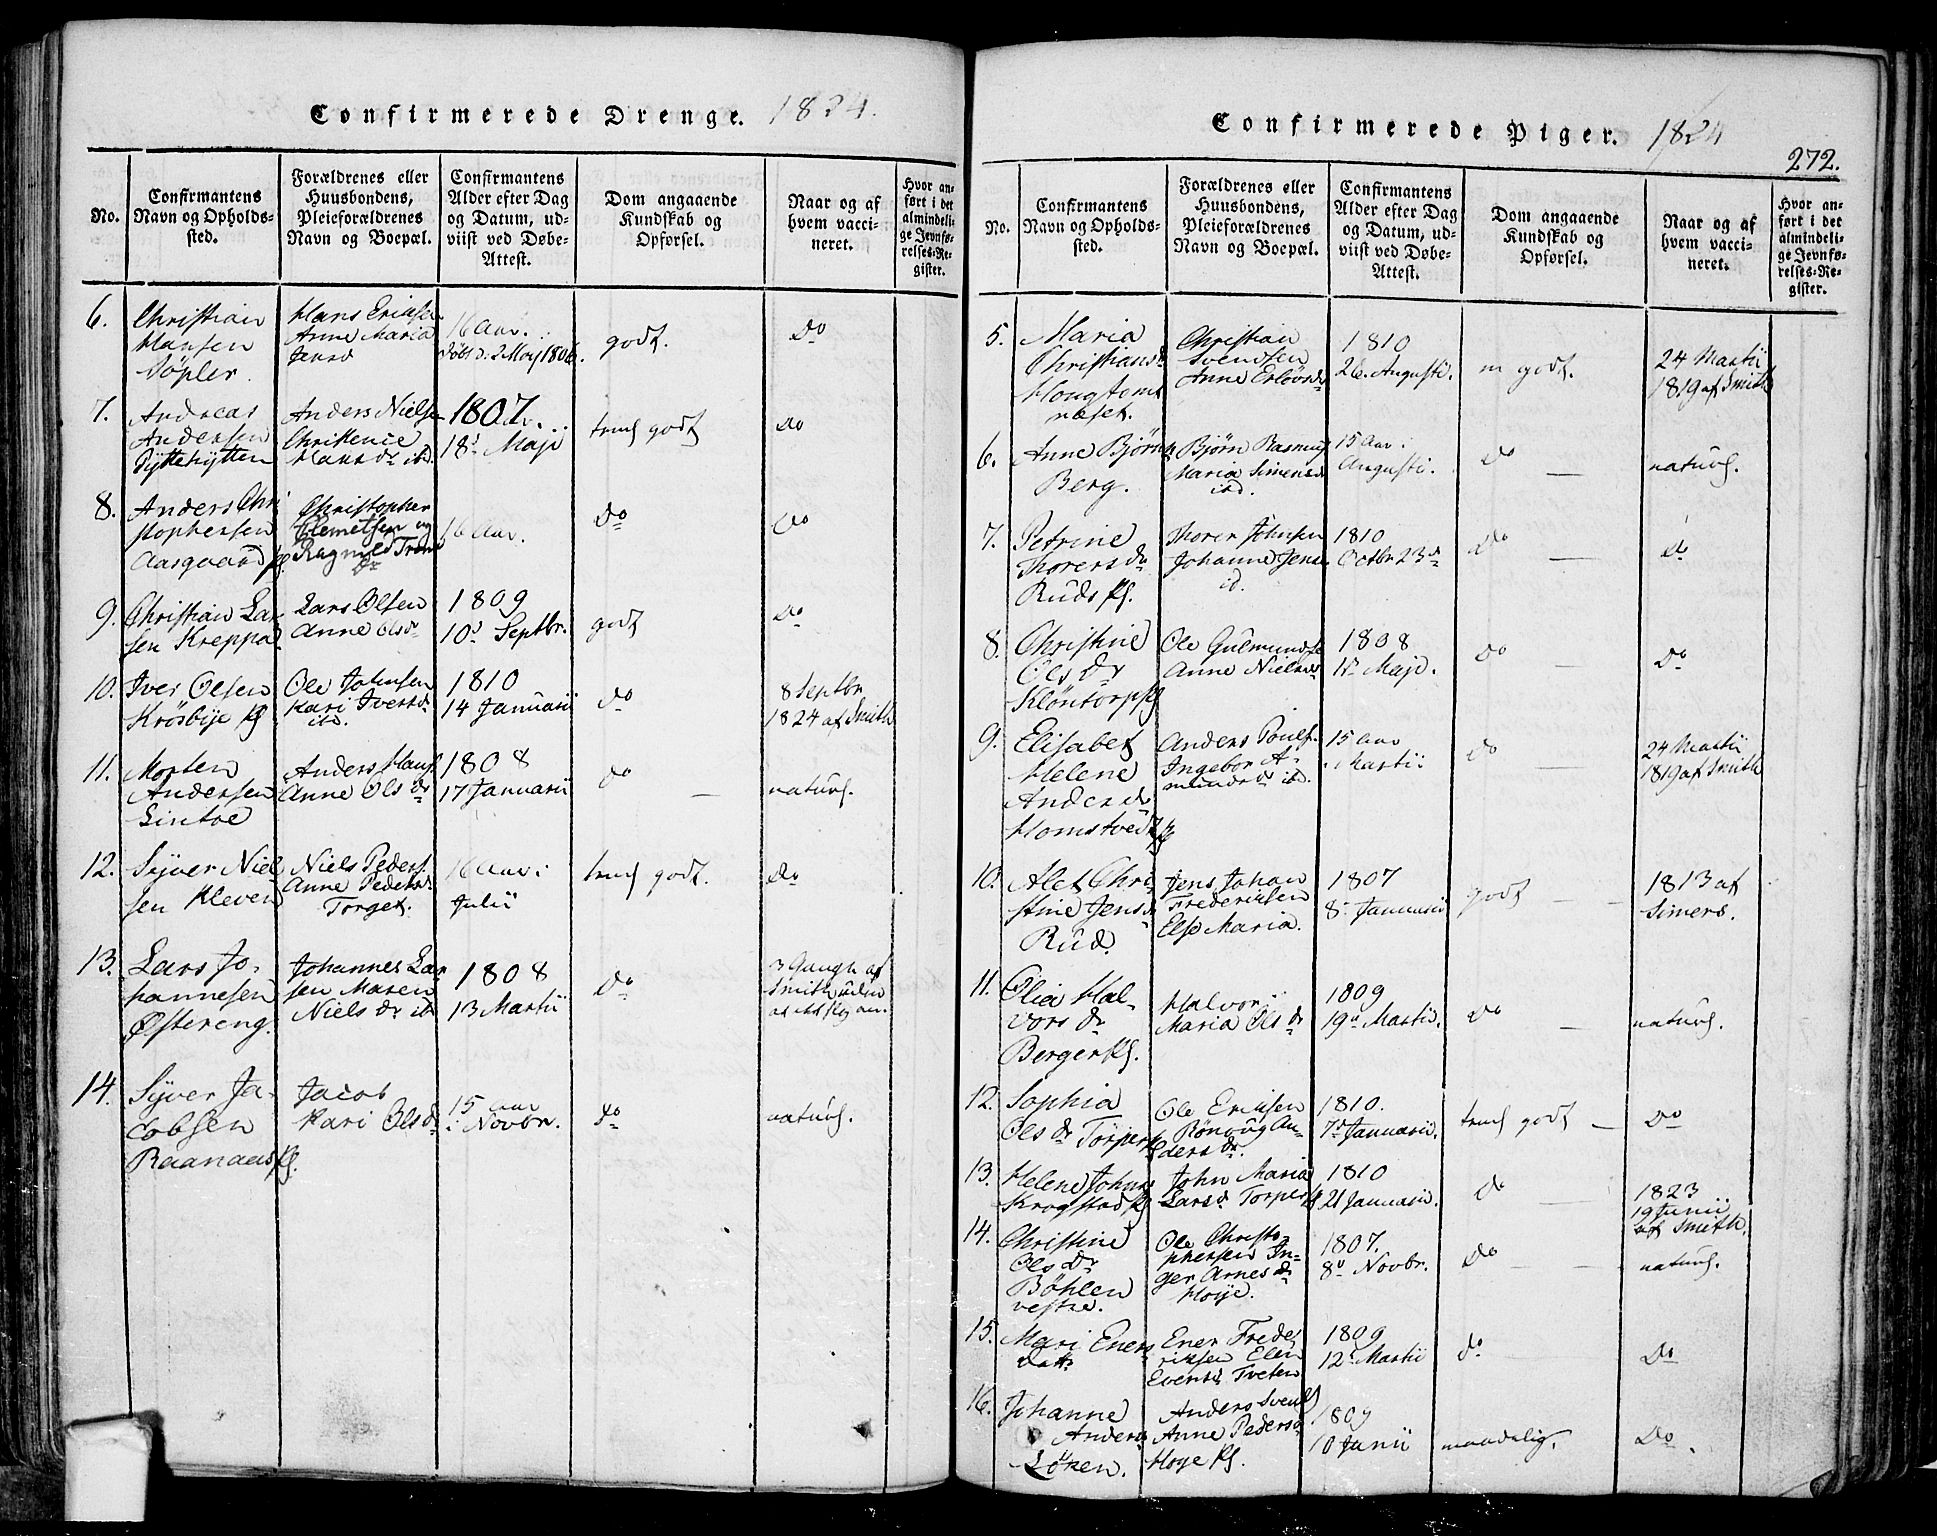 Confirmerede Drenge. 1824.
No.
Confirmantens
Navn og Opholds-
sted.
Forældrenes eller
Huusbondens,
Pleieforældrenes
Navn og Boepæl.
Confirmantens
Alder efter Dag
og Datum, ud-
viist ved Døbe-
Attest.
Dom angaaende
Kundskab og
Opførsel.
Naar og af
hvem vacci-
neret.
Hvor an-
ført i det
almindeli-
ge Jevnfø-
relses-Re-
gister.
6.
Christian
Hansen
Hans Eriksen
Anne Maria
Jensd
16 Aar.
døbt d. 2 Maj 1806.
godt.
Do
7.
Andreas
Andersen
Anders Nielsen
Christence
Hansdr ibd.
1807.
18d Maji
tem godt
Do
8.
Anders Chri
stophersen
Aasgaard
Christopher
Clemetsen og
Ragnild
Dr
16 Aar.
Do
Do
9.
Christian Lar
sen Kreppa
Lars Olsen
Anne Olsd
1809
10d Septbr.
godt
Do
10.
Iver Olsen
Krosbye
Ole Johnsen
Kari Iversdr
ibd.
1810
14 Januarii
do
8 Septbr
1824 af Smith
11.
Morten
Andersen
Lintoe
Anders Hans
Anne Olsdr
1808
17 Januarii
do
naturl.
12.
Syver Niel
sen Kleven
Niels Peders
Anne Pedersd
Torget.
16 Aar i
Julii
tem godt.
Do
13.
Lars Jo-
hannesen
Østereng.
Johannes Lar
sen Maren
Nielsdr ibd
1808
13 Martii
Do
3 Gange af
Smith uden
14.
Syver Ja-
cobsen
Raanaas
Jacob
Kari Olsdr
15 aar
i Novbr.
do
naturl.
Confirmerede Piger. 1824
272.
No.
Confirmantens
Navn og Opholds-
sted.
Forældrenes eller
Huusbondens,
Pleieforældrenes
Navn og Boepæl.
Confirmantens
Alder efter Dag
og Datum, ud-
viist ved Døbe-
Attest.
Dom angaaende
Kundskab og
Opførsel.
Naar og af
hvem vacci-
neret.
Hvor an-
ført i det
almindeli-
ge Jevnfø-
relses-Re-
gister.
5.
Maria
Christiansdr
Christian
Svendsen
Anne
1810
26. Augusti.
m godt.
24 Martii
1819 af Smith
6.
Anne Bjørn
Berg.
Bjørn Rasmus
Maria Simensd
ibd.
15 Aar i
Augusti.
Do
naturl.
7.
Petrine
Thorersdr
Ruds
Thorer Johnsen
Johanne Jens
ibd.
1810
Octbr 23d
Do
do
8.
Christine
Olsdr
Ole Gulmunds
Anne Nielsdr
1808
Maji.
Do
Do
9.
Elisabet
Helene
Andersdr
Homstvedt
Anders Pouls
Ingebor A-
mundsdr ibd.
15 aar
i Martii
do
24 Martii
1819 af Smith
10.
Alet Chri
stine Jensdr
Rud
Jens Johan
Frederiksen
Else Maria.
1807
8. Januarii
godt
1813 af
Simers.
11.
Olia Hal-
vorsdr
Berger
Halvor
Maria Olsdr
1809
19d Martii.
Do
naturl.
12.
Sophia
Olsdr
Ole Eriksen
Rønnug An-
dersdr.
1810.
7d Januarii.
tem godt
Do
13.
Helene Johns
Krogstad
John Maria
Larsd Torper
1810
21 Januarii.
do
1823
19 Junii
af Smith.
14.
Christine
Olsdr
Bøhlen
vestre.
Ole Christo-
phersen In-
ger Arnesdr
Hoye.
1807.
8d Novbr.
Do
naturl.
15.
Mari Eners
datr
Ener Frede
riksen Elen
Evensd Tveten
1809
12d Martii
do
Do
16.
Johanne
Anders
Løken.
Anders Svends
Anne Pedersd
Hoye
1809
10 Junii
maadelig.
Do.